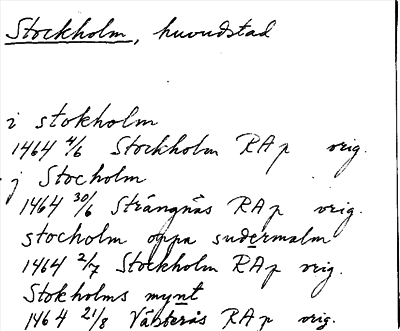 Stockholm, huvudstad
i stokholm
1464 4/6 Stockholm RA p orig.
j Stocholm
1464 30/6 Strängnäs RA p orig.
stocholm oppa sudermalm
1464 2/7 Stockholm RA p orig.
Stokholms mynt
1464 21/8 Västerås RA p orig.